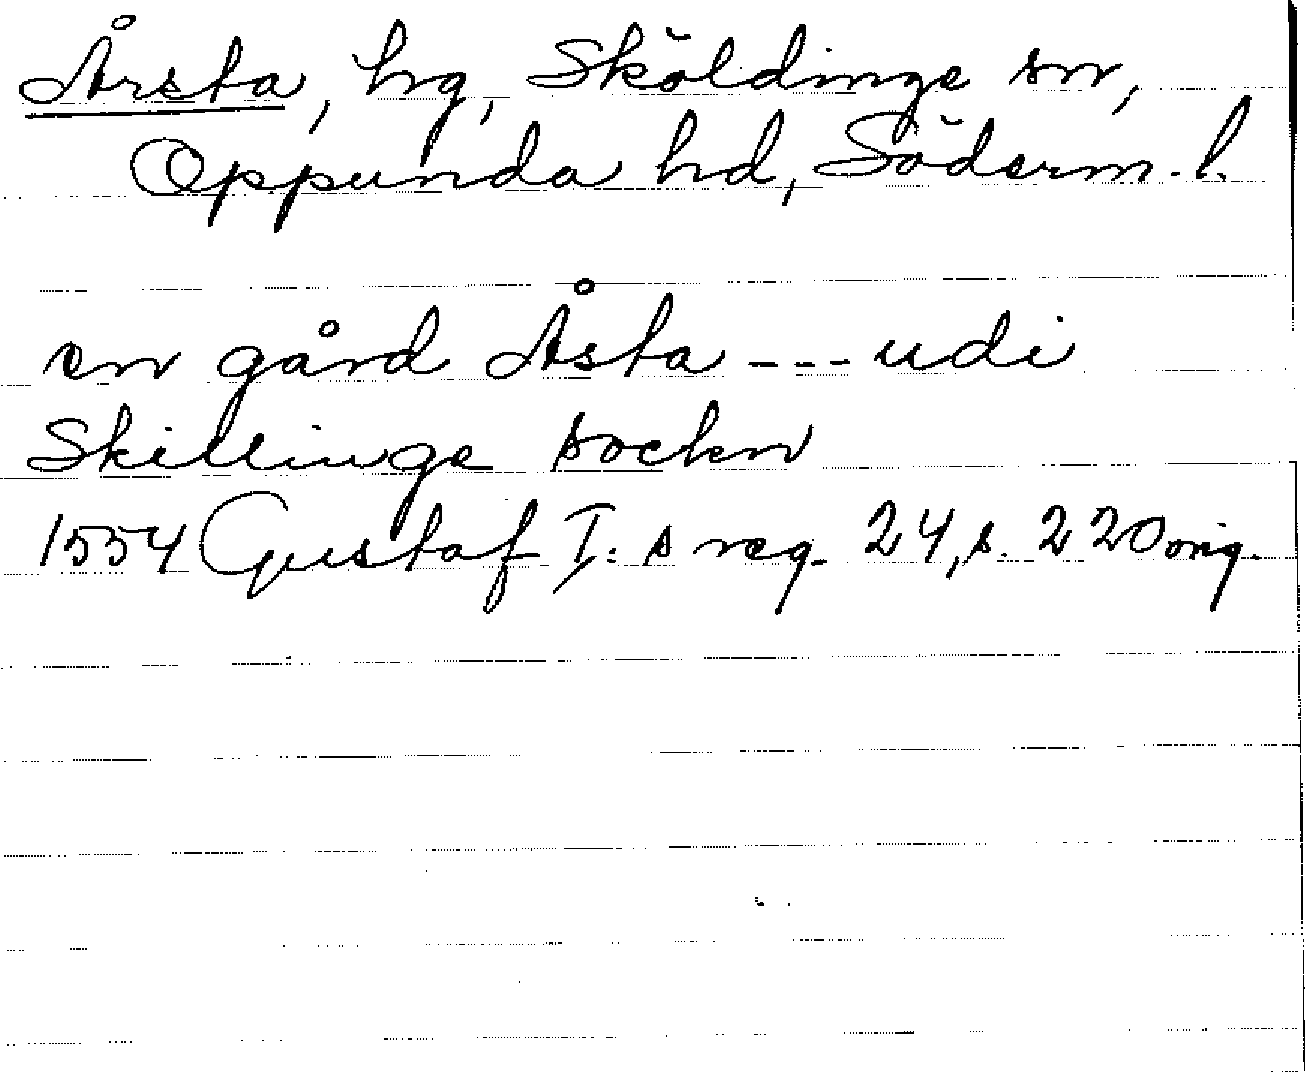 Årsta, hg, Sköldinge sn,
Oppunda hd, Söderm. l.
en gård Åsta --- udi
Skillinge sockn
1554 Gustaf I: s reg. 24, s. 220 orig.